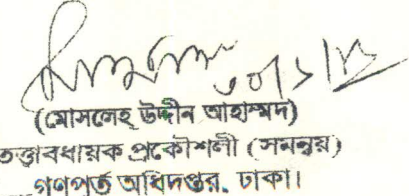 ৩০/১/১৩
(মোসলেহ্ উদ্দীন আহাম্মদ)
তত্ত্বাবধায়ক প্রকৌশলী (সমন্বয়)
গণপূর্ত অধিদপ্তর, ঢাকা।